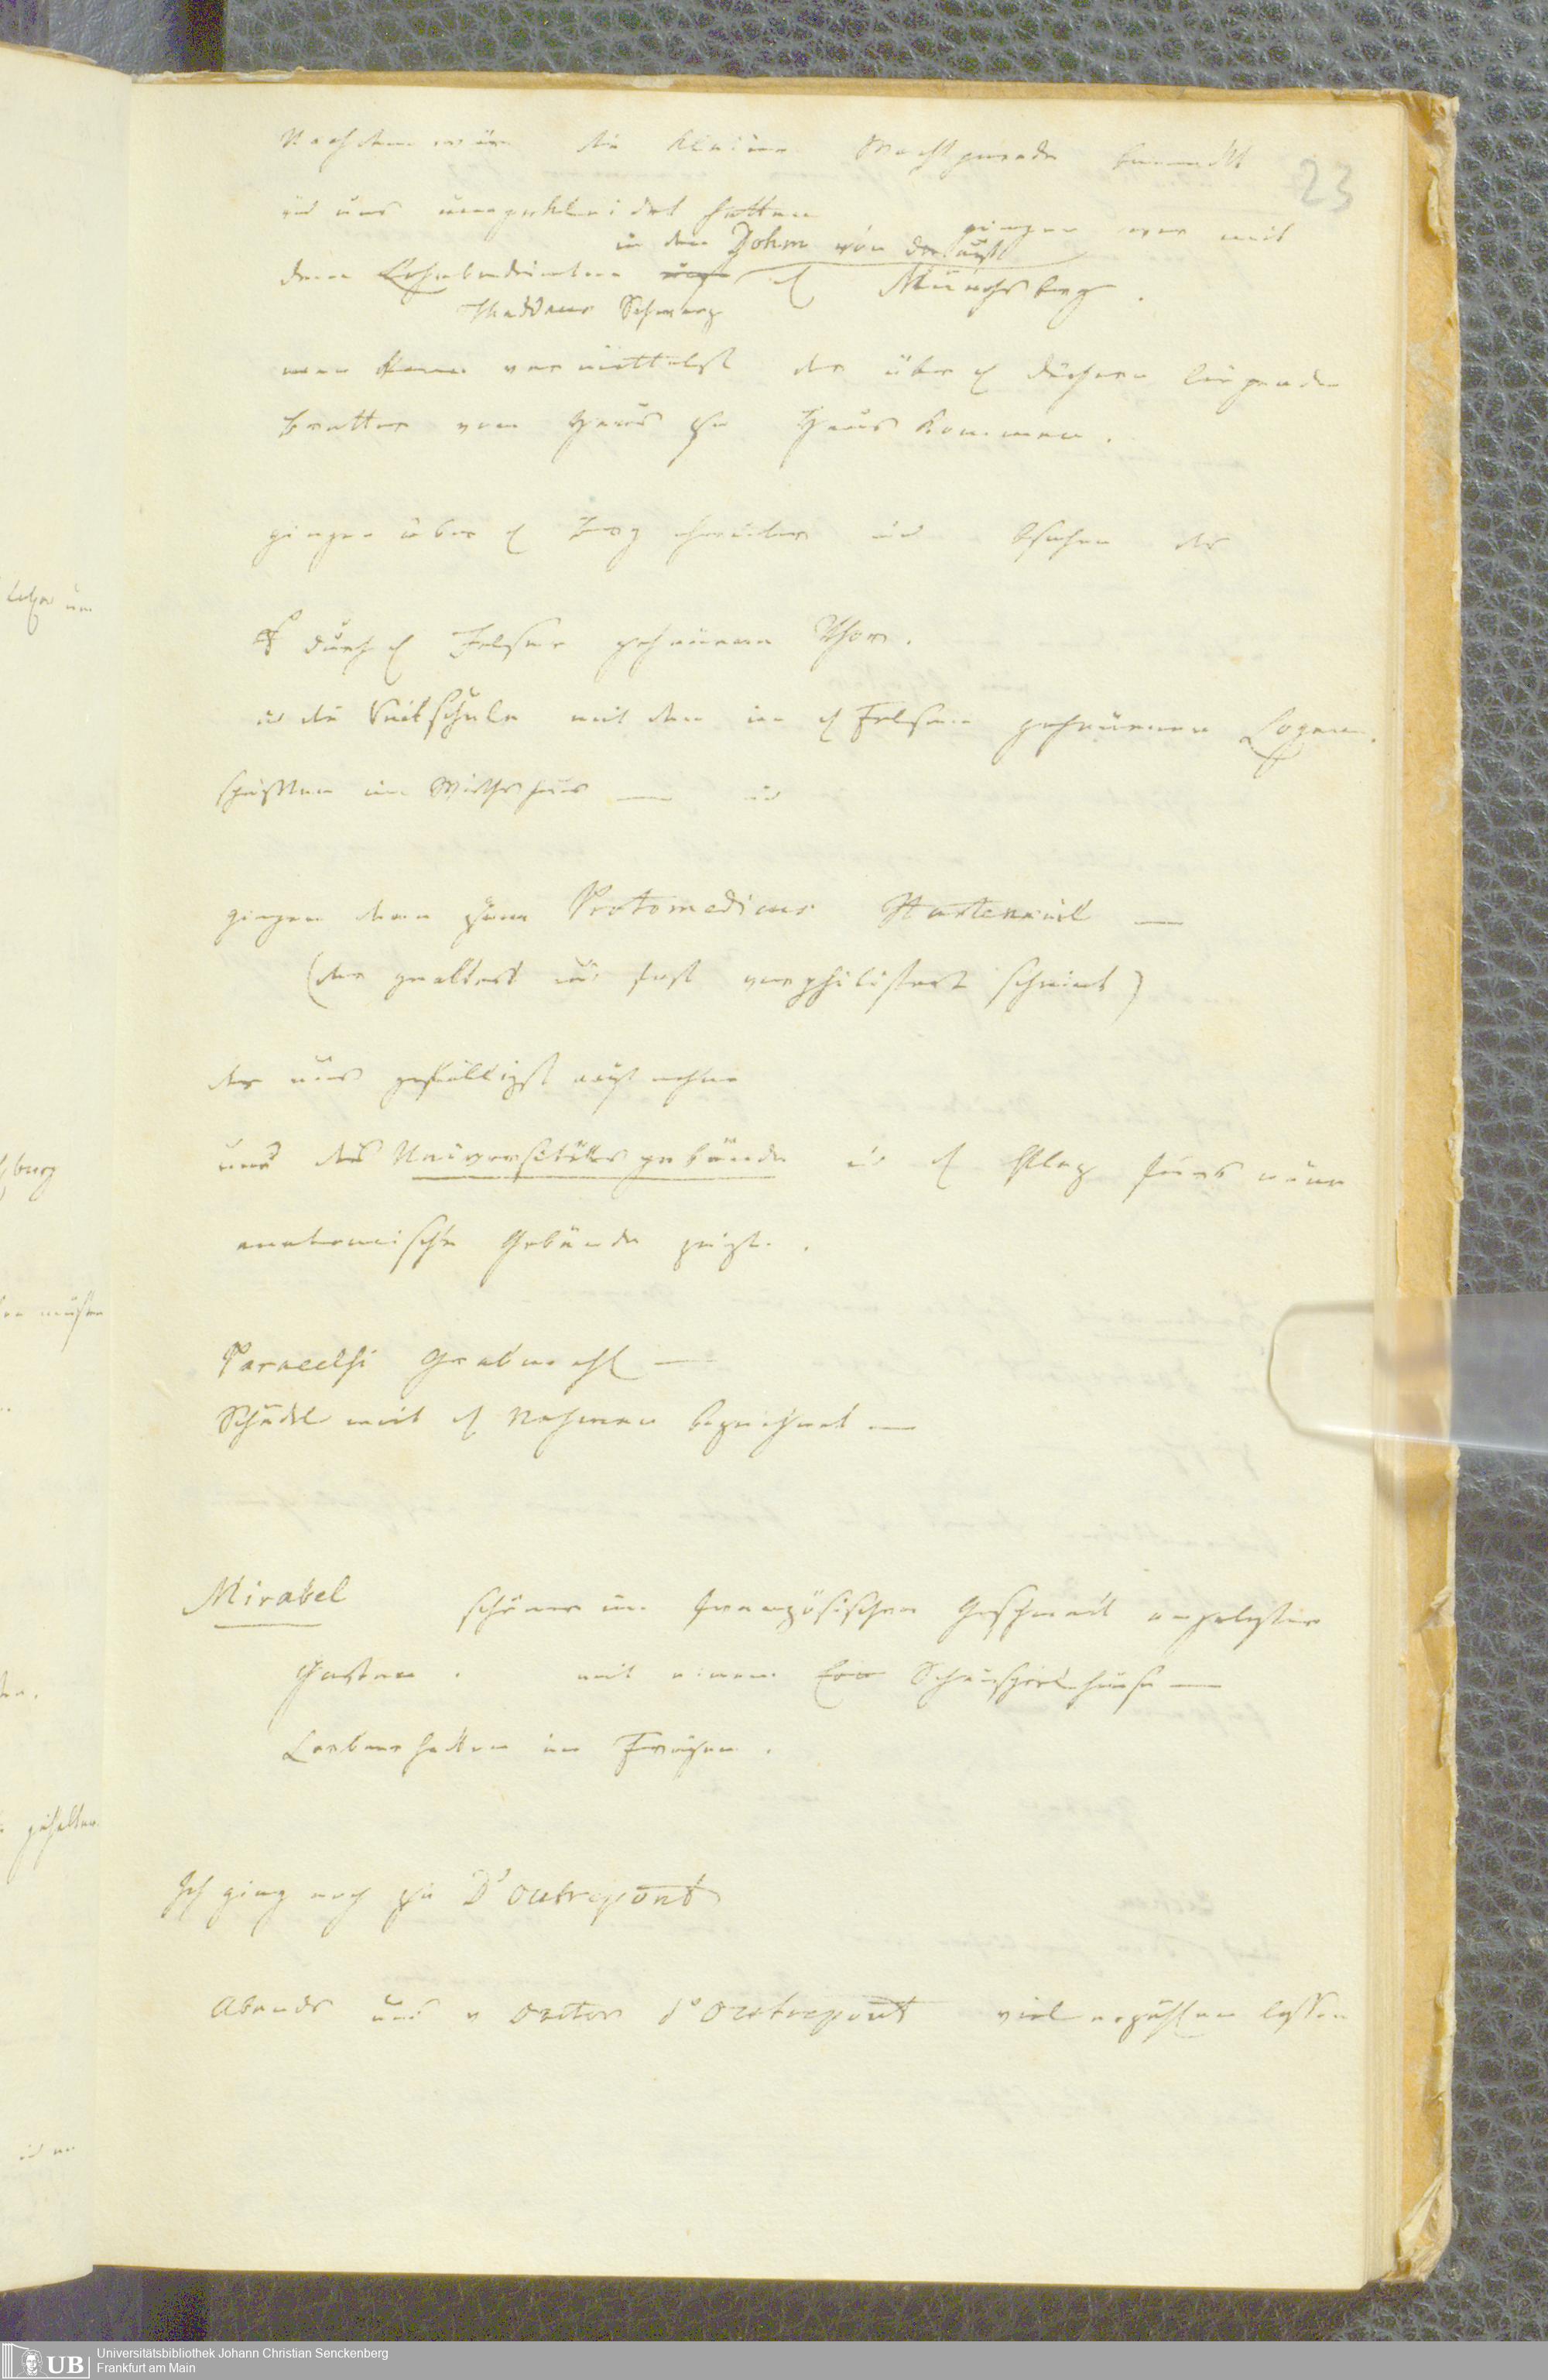 23
Nachdem wir die kleine Wachtparade bemerkt
und uns umgekleidet hatten
gingen wir mit
in den Dohm von da auf
dem Lohnbedienten d Münchsberg.
Thaddaus Schwarz
man kann vermittelst der über d Dächern liegenden
Bretter von Haus zu Haus kommen.
gingen über d Berg herunter und besahen das
durch d Felsen gehauene Thor.
u die Reitschule mit den in d Felsen gehauenen Logen.
speißten im Wirthshaus — und
gingen dann zum Protomedicus Hartenkeil —
(der gealtert und fast verphilistert scheint)
der uns gefälligst aufnahm
uns das Universitätsgebäude u d Platz fürs neue
anatomische Gebäude zeigte.
Paracelsi Grabmahl —
Schädel mit d Nahmen bezeichnet —
Mirabel schöner im französischen Geschmack angelegter
Garten. mit einem Schauspielhause —
Lorberhecken im Freyen.
Ich ging noch zu D'outrepont
Abends uns v Doctor d'outrepont viel erzählen lassen
Universitätsbibliothek Johann Christian Senckenberg
Frankfurt am Main
UB